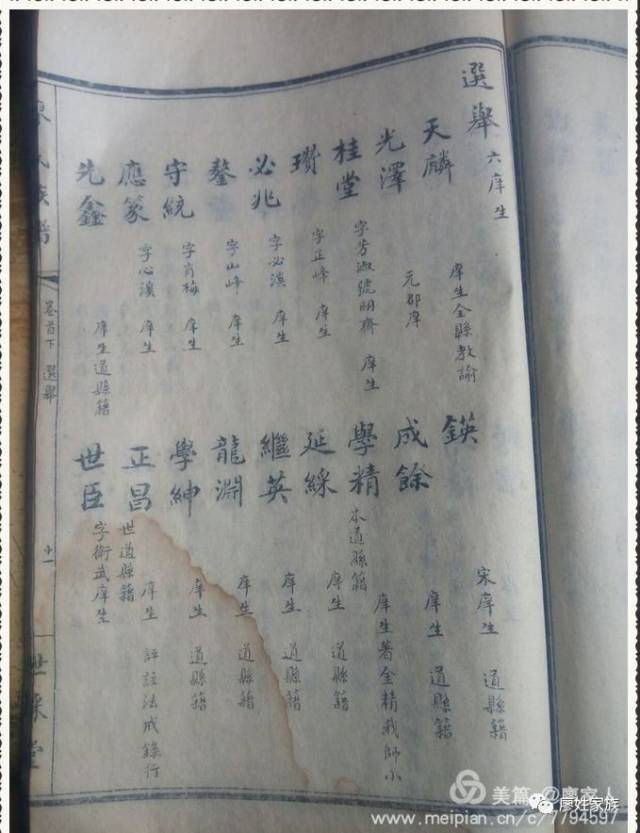 選舉 六庠生
天麟 庠生全縣教諭
鍈 宋庠生 道縣籍
光澤 元郡庠
成餘 庠生 道縣籍
桂堂 字芳淑號明齊 庠生
學精 本道縣籍 庠生著金精 師小
瓚 字正峰 庠生
延綵 庠生 道縣籍
必兆 字必濱 庠生
繼英 庠生 道縣籍
鏊 字山峰 庠生
龍淵 庠生 道縣籍
守統 字肖梅 庠生
學紳 庠生 道縣籍
應篆 字心濱 庠生
正昌 世道縣籍 庠生 評註法戒錄行
先鑫 庠生道縣籍
世臣 字衛武庠生
氏族譜
卷首下 選舉
十一
世綵堂
美篇 @廖家人
www.meipian.cn/c/7794597
廖姓家族